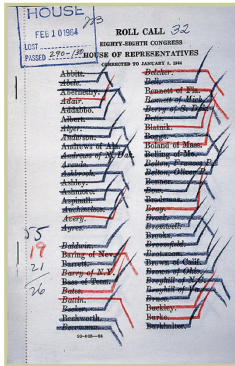 HOUSE
FEB 10 1964
LOST
PASSED 290-130
ROLL CALL 32
EIGHTY-EIGHTH CONGRESS
HOUSE OF REPRESENTATIVES
CORRECTED TO JANUARY 3, 1964
Abbitt.
Abele.
Abernethy.
Adair.
Addabbo.
Albert.
Alger.
Anderson.
Andrews of Ala.
Andrews of N. Dak.
Arends.
Ashbrook.
Ashley.
Ashmore.
Aspinall.
Auchincloss.
Avery.
Ayres.
Baldwin.
Baring of Nev.
Barrett.
Barry of N.Y.
Bass of Tenn.
Bates.
Battin.
Becker.
Beckworth.
Beermann.
Belcher.
Bell.
Bennett of Fla.
Bennett of Mich.
Berry of S. Dak.
Betts.
Blatnik.
Boggs.
Boland of Mass.
Bolling of Mo.
Bolton, Frances P.
Bolton, Oliver P.
Bonner.
Bow.
Brademas.
Bray.
Brock.
Bromwell.
Brooks.
Broomfield.
Brotzman.
Brown of Calif.
Brown of Ohio.
Broyhill of N.C.
Broyhill of Va.
Bruce.
Buckley.
Burke.
Burkhalter.
55
19
21
26